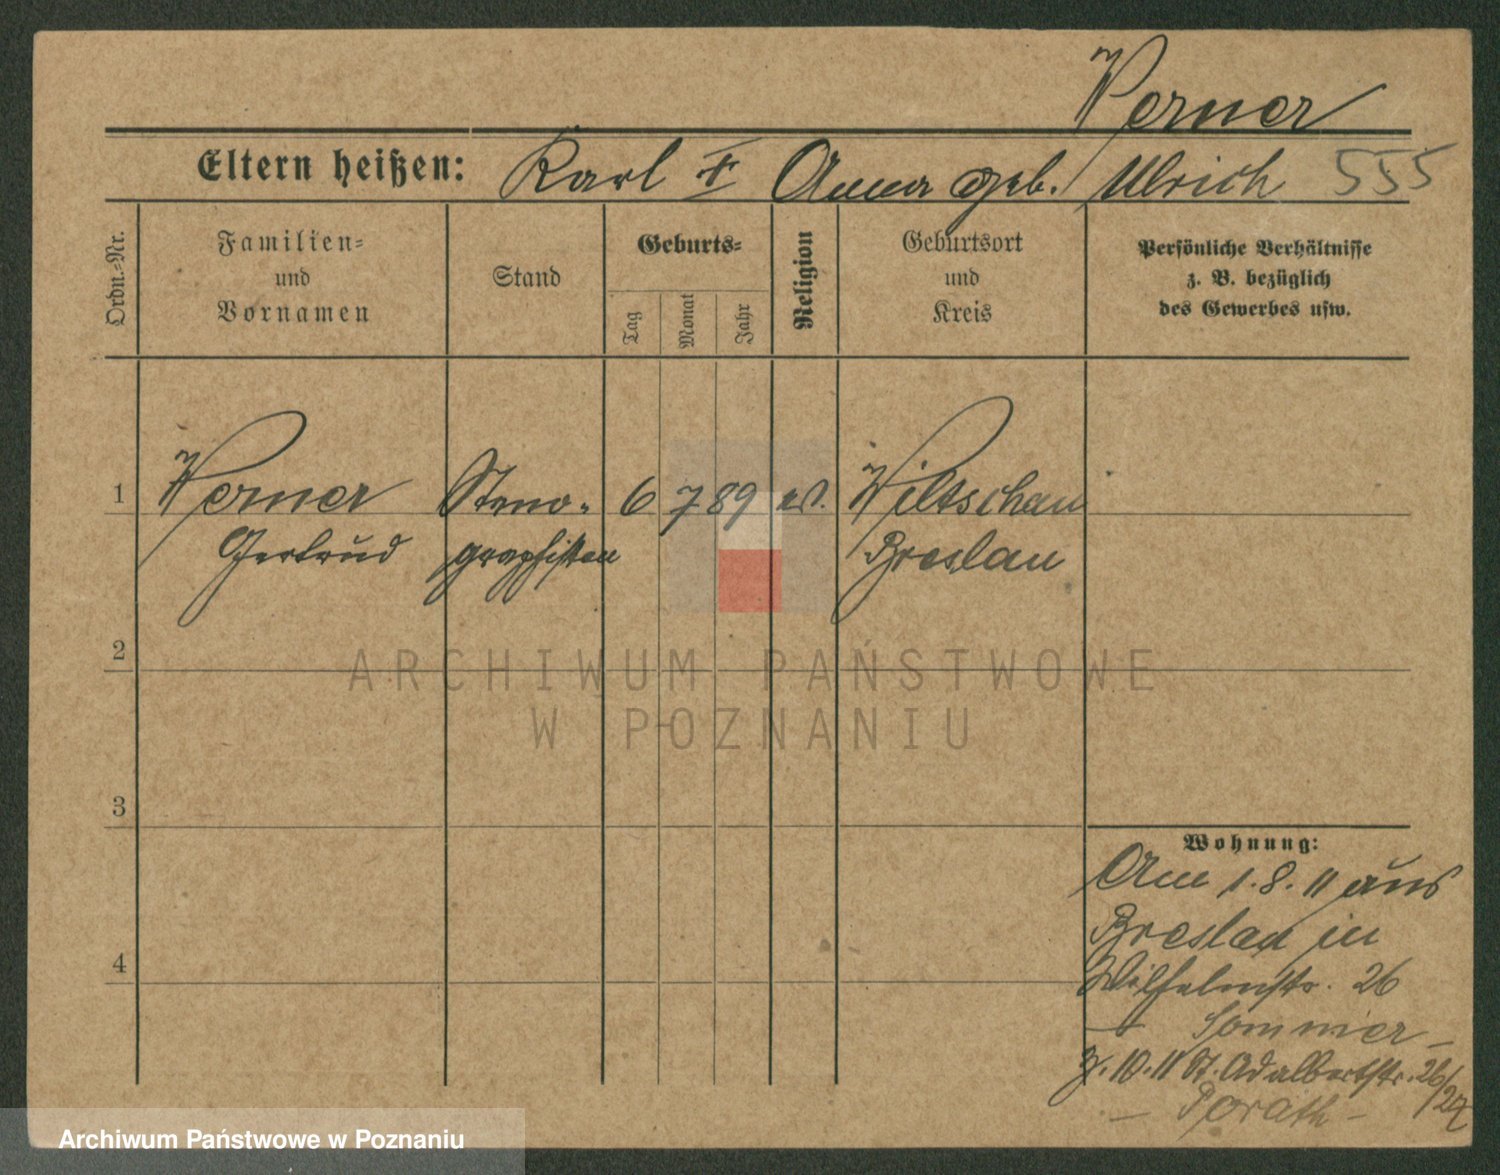 Werner
Eltern heißen: Karl † Anna geb. Ulrich 555
Ordn.-Nr.
Familien-
und
Vornamen
Stand
Geburts-
Tag
Monat
Jahr
Religion
Geburtsort
und
Kreis
Persönliche Verhältnisse
z. B. bezüglich
des Gewerbes usw.
1 Werner Steno- 6 7 89 ev. Wiltschau
Gertrud graphistin Breslau
2
ARCHIWUM PAŃSTWOWE
W POZNANIU
3
Wohnung:
Am 1.8.11 aus
Breslau in
Wilhelmstr. 26
Sommer –
2.10.11 St. Adalbertstr. 26/27
– Porath –
4
Archiwum Państwowe w Poznaniu